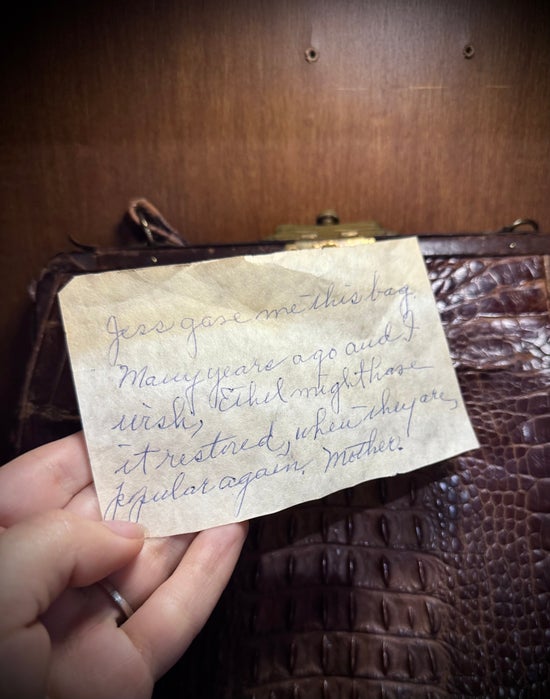 Jess gave me this bag
Many years ago and I
wish, Ethel might have
it restored, when they are,
popular again. Mother.